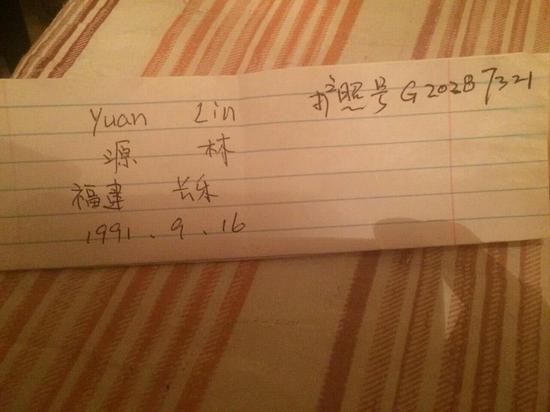 Yuan Lin
源 林
福建 长乐
1991.9.16
护照号 G20287321